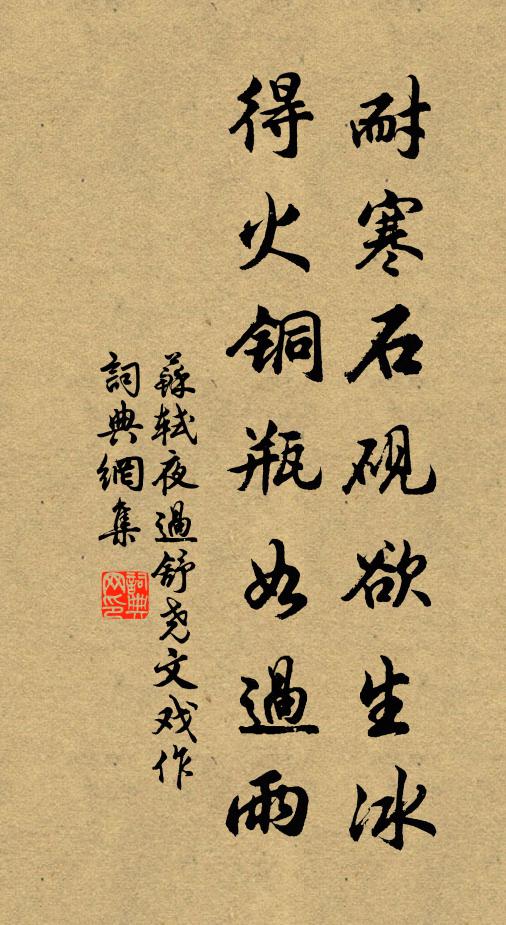 耐寒石砚欲生冰
得火铜瓶如過雨
蘇轼夜過舒尧文戏作
詞典網集
詞典网印